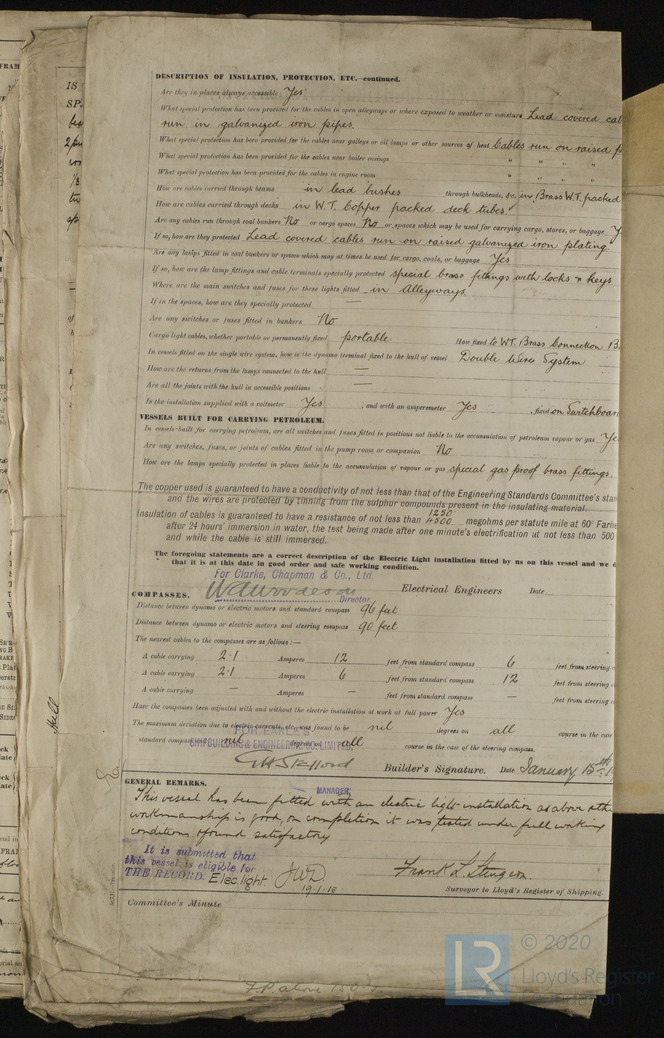 DESCRIPTION OF INSULATION, PROTECTION, ETC.—continued.
Are they in places always accessible Yes
What special protection has been provided for the cables in open alleyways or where exposed to weather or moisture Lead covered
run in galvanized iron pipes.
What special protection has been provided for the cables near galleys or oil lamps or other sources of heat Cables run on raised
What special protection has been provided for the cables near boiler casings " " " "
What special protection has been provided for the cables in engine room " " " "
How are cables carried through beams in lead bushes through bulkheads, &c. in Brass W.T. packed
How are cables carried through decks in W.T. Copper packed deck tubes.
Are any cables run through coal bunkers No or cargo spaces No or spaces which may be used for carrying cargo, stores, or baggage
If so, how are they protected Lead covered cables run on raised galvanized iron plating
Are any lamps fitted in coal bunkers or spaces which may at times be used for cargo, coals, or baggage Yes
If so, how are the lamp fittings and cable terminals specially protected special brass fittings with locks & keys
Where are the main switches and fuses for these lights fitted in Alleyways
If in the spaces, how are they specially protected —
Are any switches or fuses fitted in bunkers No
Cargo light cables, whether portable or permanently fixed portable How fixed to W.T. Brass Connection
In vessels fitted on the single wire system, how is the dynamo terminal fixed to the hull of vessel Double Wire System
How are the returns from the lamps connected to the hull —
Are all the joints with the hull in accessible positions —
Is the installation supplied with a voltmeter Yes , and with an amperemeter Yes , fixed on Switchboard
VESSELS BUILT FOR CARRYING PETROLEUM.
In vessels built for carrying petroleum, are all switches and fuses fitted in positions not liable to the accumulation of petroleum vapour or gas
Are any switches, fuses, or joints of cables fitted in the pump room or companion No
How are the lamps specially protected in places liable to the accumulation of vapour or gas special gas proof brass fittings.
The copper used is guaranteed to have a conductivity of not less than that of the Engineering Standards Committee's
and the wires are protected by tinning from the sulphur compounds present in the insulating material.
1250
Insulation of cables is guaranteed to have a resistance of not less than megohms per statute mile at 60°
after 24 hours' immersion in water, the test being made after one minute's electrification at not less than 500
and while the cable is still immersed.
The foregoing statements are a correct description of the Electric Light installation fitted by us on this vessel and we
that it is at this date in good order and safe working condition.
For Clarke, Chapman & Co., Ltd.
Director. Electrical Engineers Date
COMPASSES.
Distance between dynamo or electric motors and standard compass 96 feet
Distance between dynamo or electric motors and steering compass 90 feet
The nearest cables to the compasses are as follows:—
A cable carrying 2·1 Amperes 12 feet from standard compass 6 feet from steering
A cable carrying 2·1 Amperes 6 feet from standard compass 12 feet from steering
A cable carrying — Amperes — feet from standard compass — feet from steering
Have the compasses been adjusted with and without the electric installation at work at full power Yes
The maximum deviation due to electric currents, etc., was found to be nil degrees on all course in the case
standard compass nil degrees on all course in the case of the steering compass.
FOR EARLE'S
SHIPBUILDING & ENGINEERING CO. LIMITED.
Builder's Signature. Date January 15th
MANAGER.
GENERAL REMARKS.
This vessel has been fitted with an electric light installation as above & the
workmanship is good, on completion it was tested under full working
conditions & found satisfactory
It is submitted that
this vessel is eligible for
THE RECORD. Elec. light.
19.1.18
Surveyor to Lloyd's Register of Shipping.
Committee's Minute
LR © 2020
Lloyd's Register
Foundation